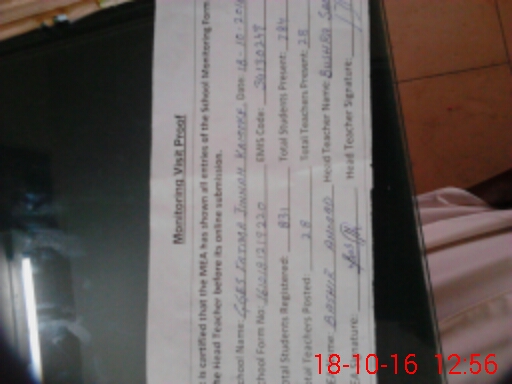 Monitoring Visit Proof
is certified that the MEA has shown all entries of the School Monitoring Form
he Head Teacher before its online submission.
chool Name: GGES FATIMA JINNAH KAMOKE Date: 18-10-2016
chool Form No: EMIS Code:
otal Students Registered: 831 Total Students Present: 784
otal Teachers Posted: 28 Total Teachers Present: 28
Name: BASHIR AHMAD Head Teacher Name: BUSHRA
EA Signature: Head Teacher Signature:
18-10-16 12:56